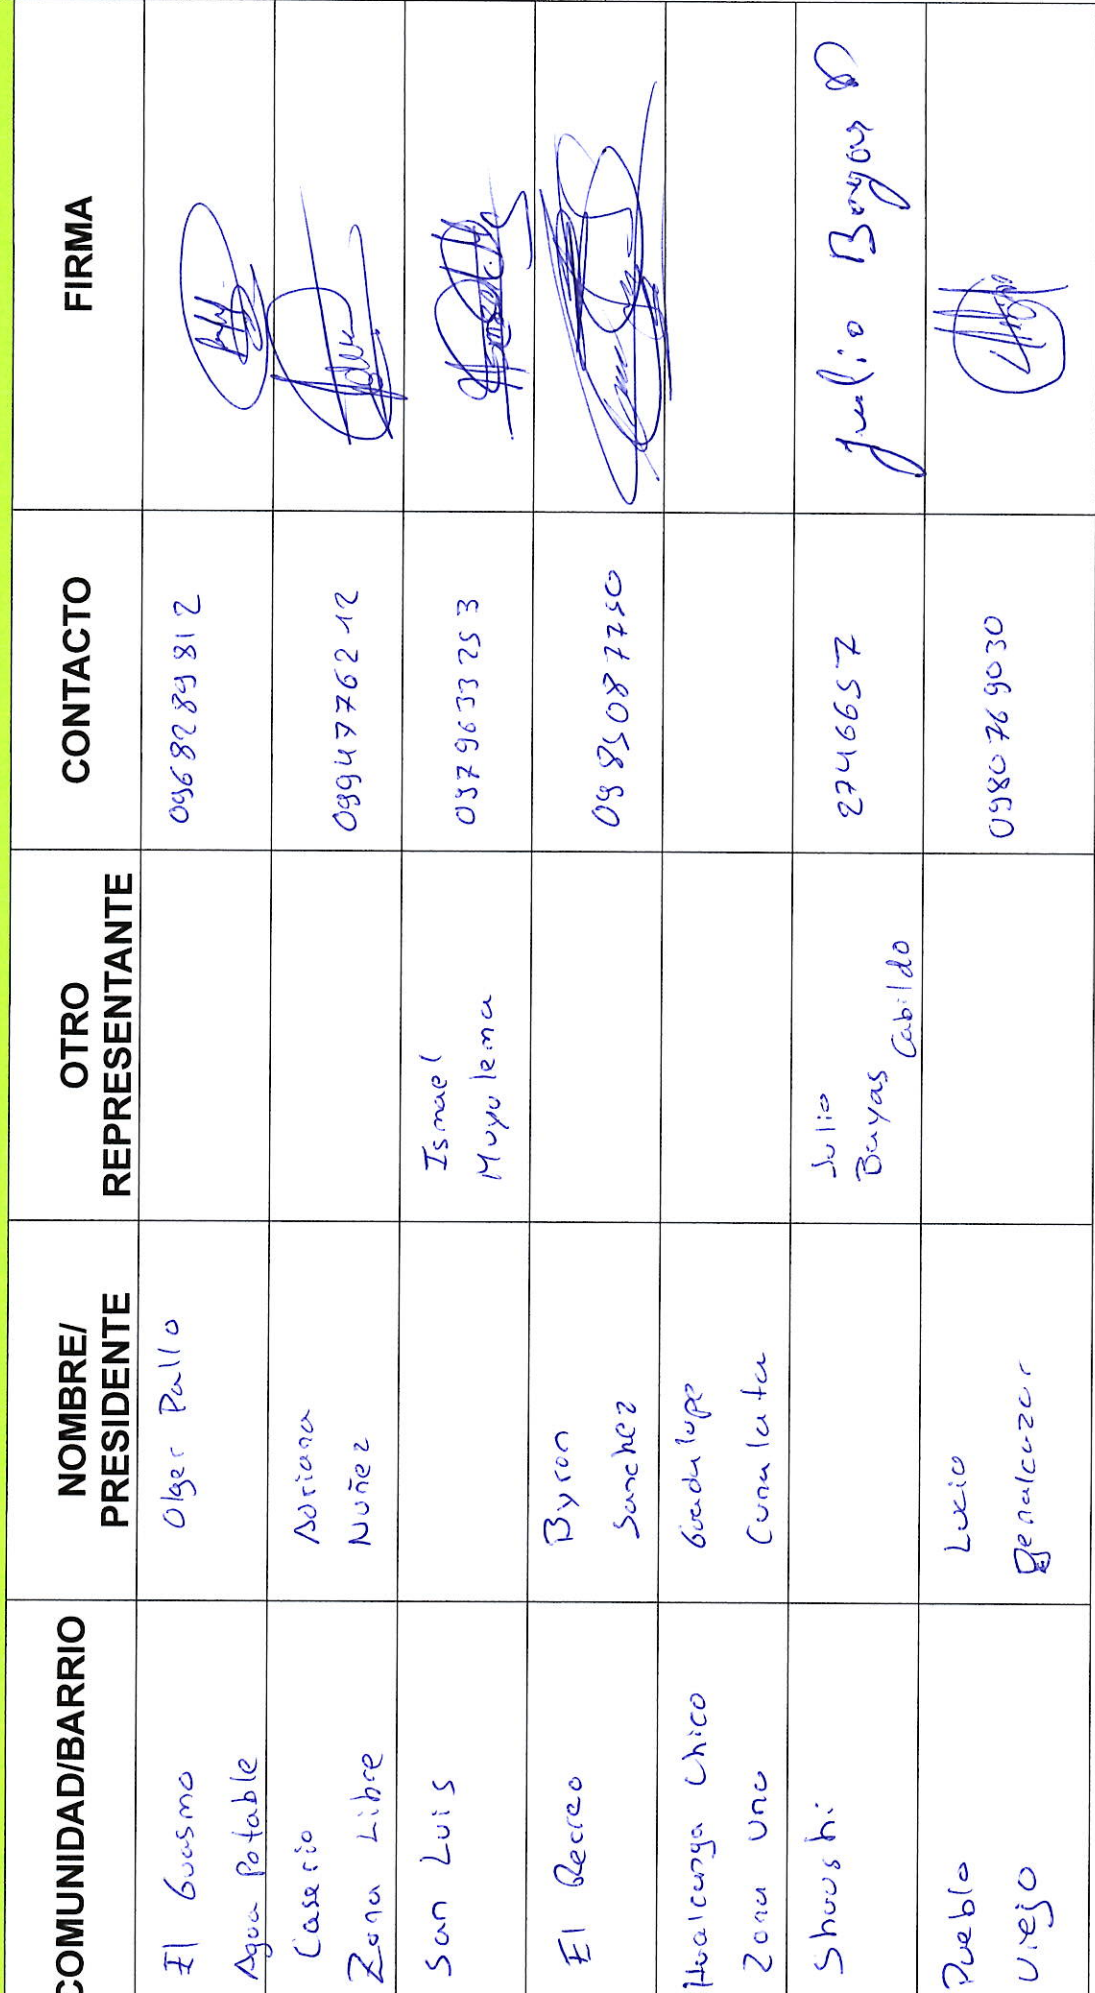 COMUNIDAD/BARRIO NOMBRE/ PRESIDENTE OTRO REPRESENTANTE CONTACTO FIRMA
El Guasmo
Agua Potable
Olger Pallo
0968289812
Caserio
Zona Libre
Adriana
Nuñez
0994776212
San Luis
Ismael
Muyulema
0979633253
El Recreo
Byron
Sanchez
0985087750
Hualcanga Chico
Zona Uno
Guadalupe
Cunalata
Shuushi
Julio
Bayas Cabildo
2746657
Julio Bayas
Pueblo
Viejo
Lucio
Benalcazar
0980769030